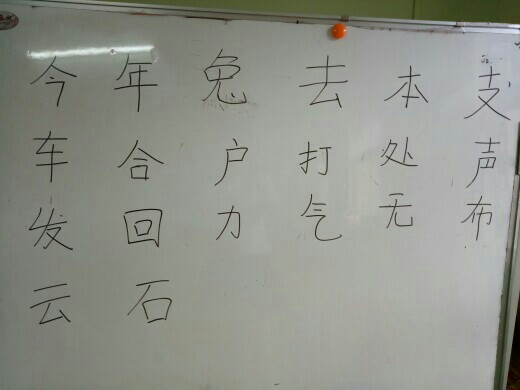 今 年 兔 去 本 支
车 合 户 打 处 声
发 回 力 气 无 布
云 石